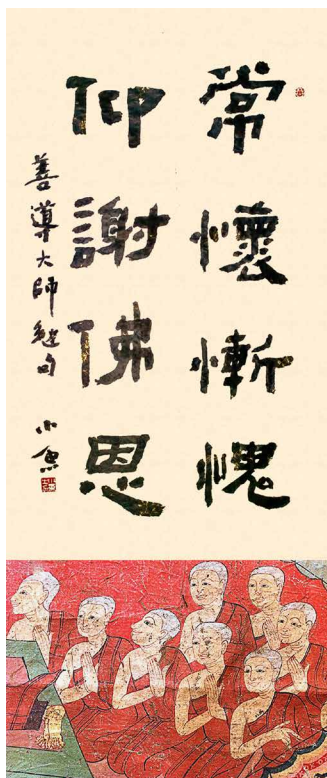 常懷慚愧
仰謝佛恩
善導大師
小魚